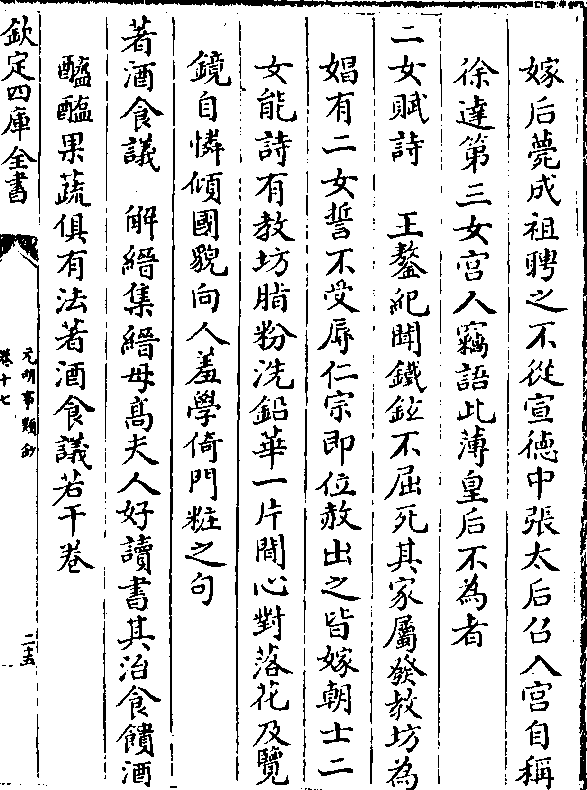 嫁后薨成祖聘之不從宣德中張太后召入宮自稱
徐達第三女宮人竊語此薄皇后不為者
二女賦詩　王鏊紀聞鐵鉉不屈死其家屬發教坊為
娼有二女誓不受辱仁宗即位赦出之皆嫁朝士二
女能詩有教坊脂粉洗鉛華一片閒心對落花及覽
鏡自憐傾國貌向人羞學倚門粧之句
著酒食議　解縉集縉母髙夫人好讀書其治食饋酒
醯醢果蔬俱有法著酒食議若干卷
欽定四庫全書
元明事類鈔
卷十七
二十五